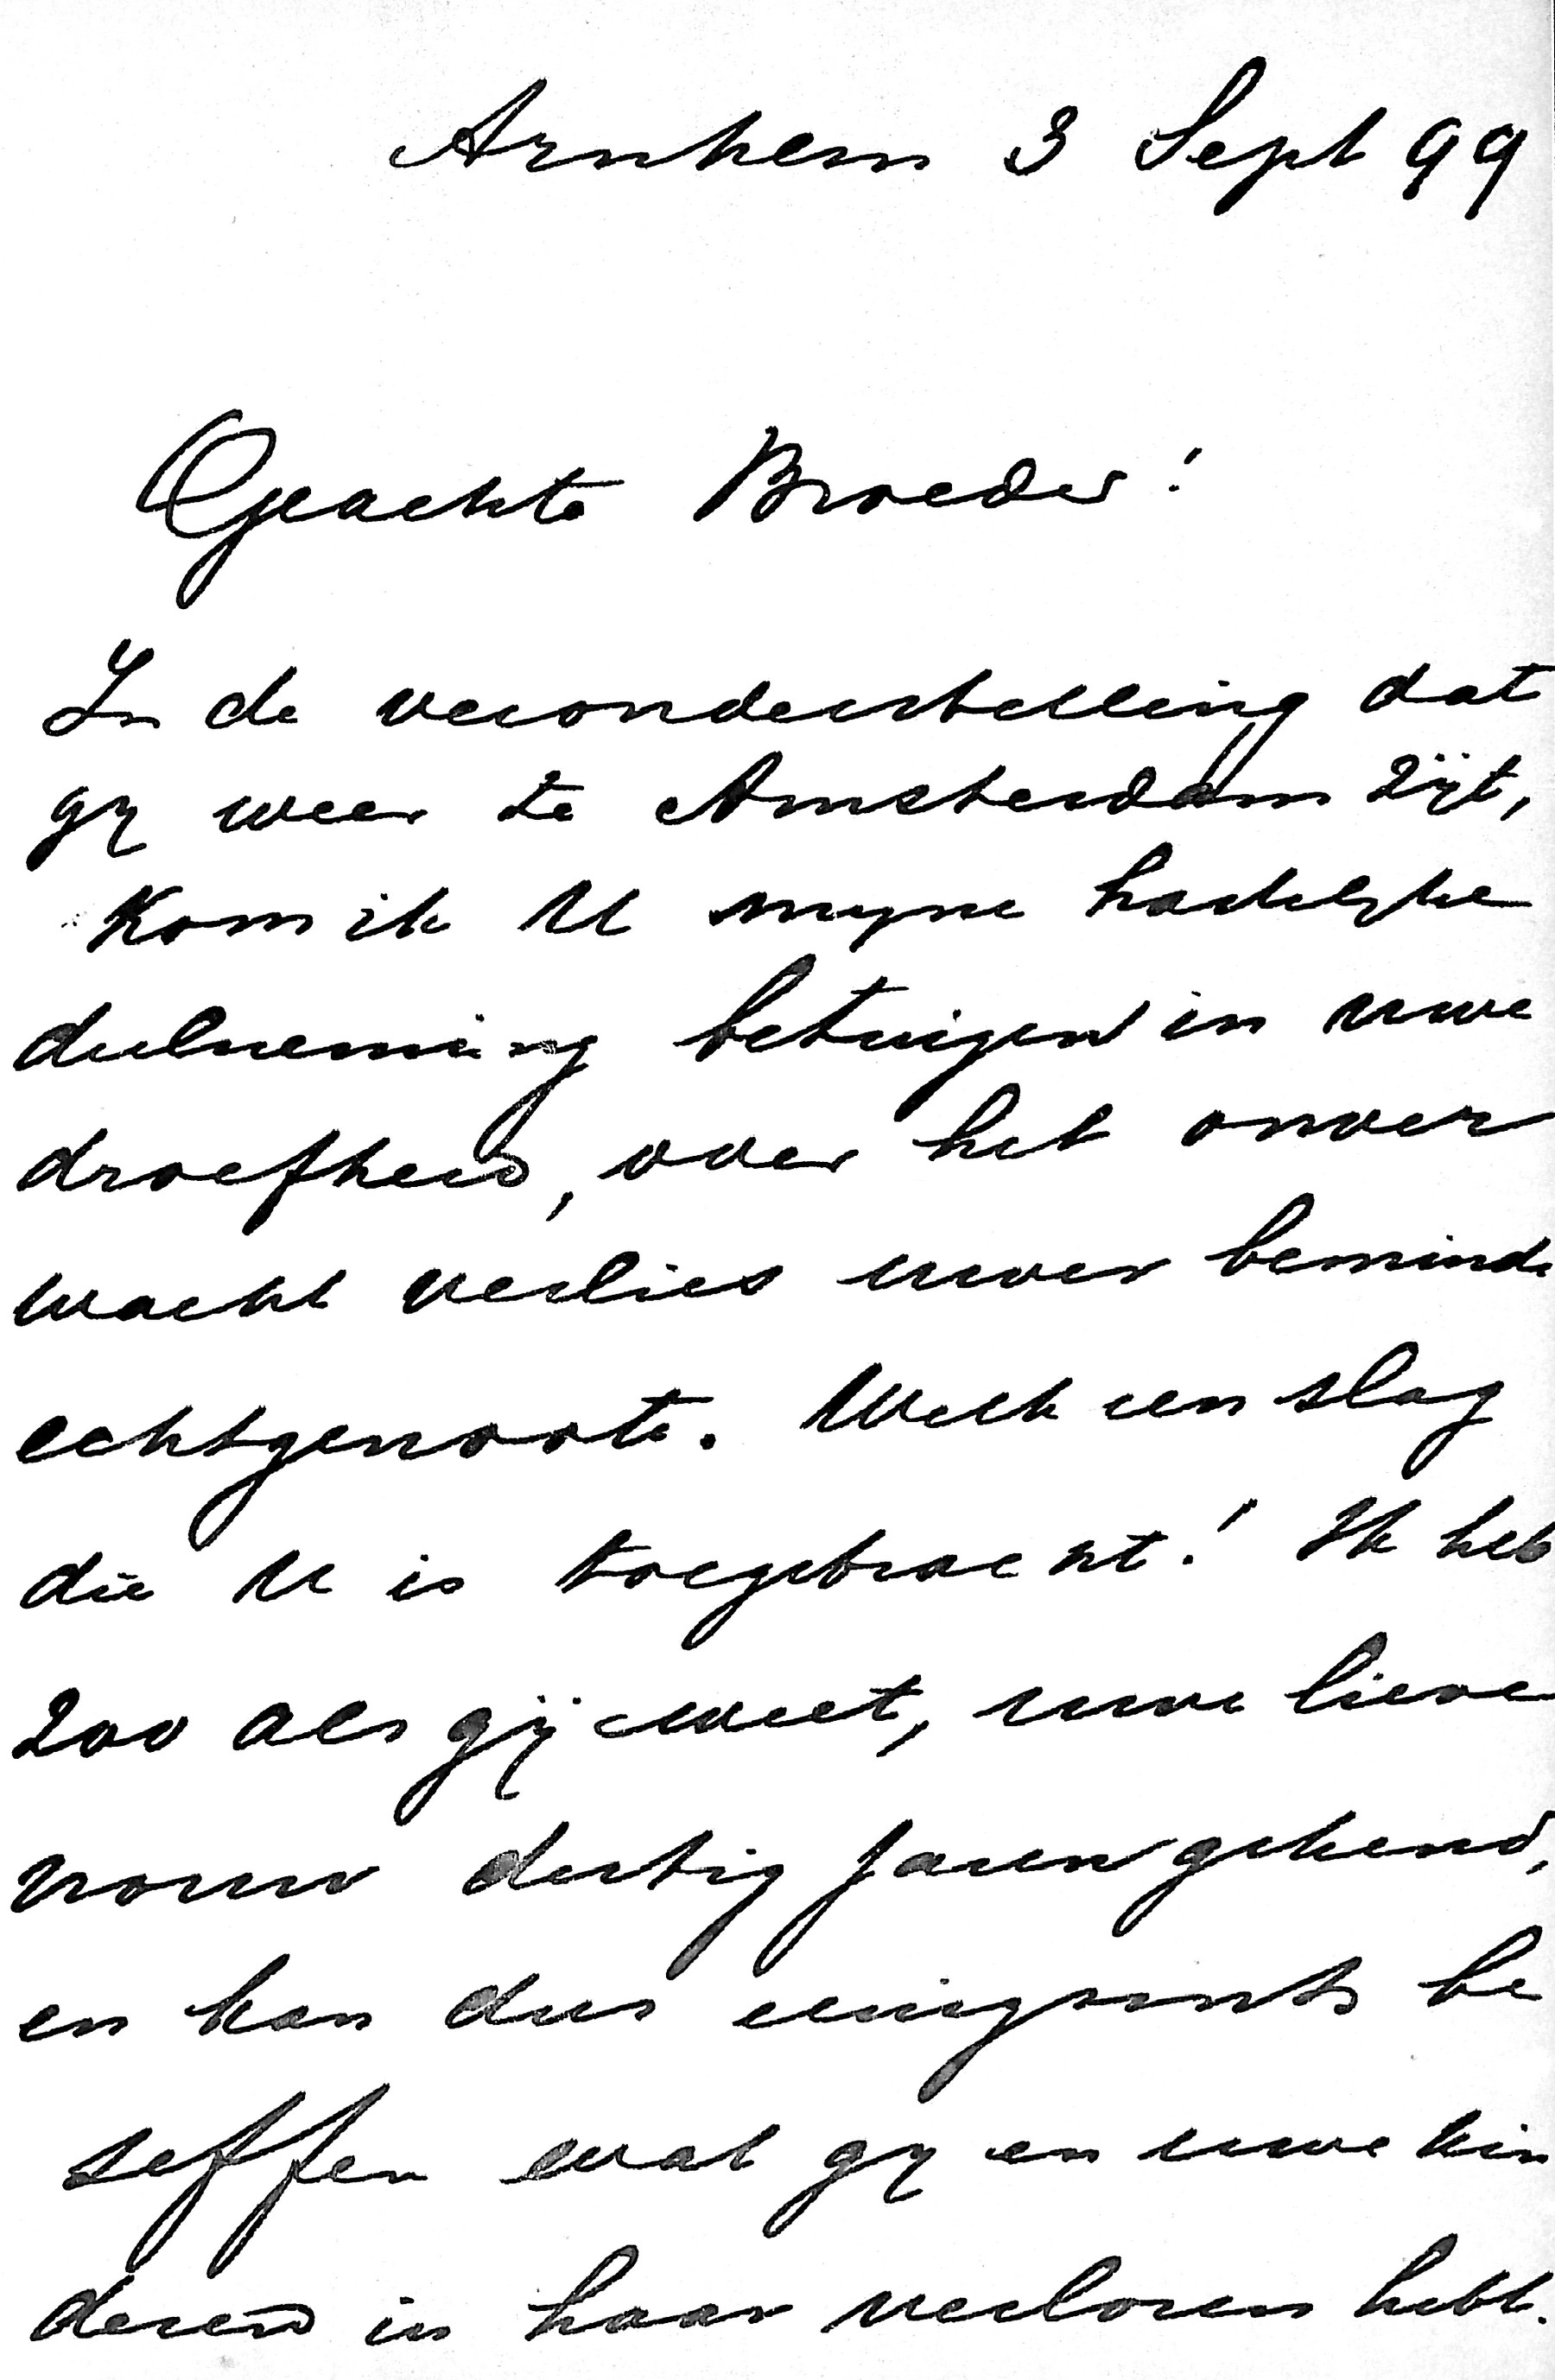 Arnhem 3 Sept 99
Geachte Broeder!
In de veronderstelling dat
gij weer te Amsterdam zijt,
kom ik U mijne hartelijke
deelneming betuigen in uwe
droefheid, over het onver
wacht verlies uwer beminde
echtgenoote. Welk een slag
die U is toegebracht! Ik heb
zoo als gij weet, uwe lieve
vrouw dertig jaren gekend,
en kan dus eenigzints be
seffen wat gij en uwe kin
deren in haar verloren hebt.